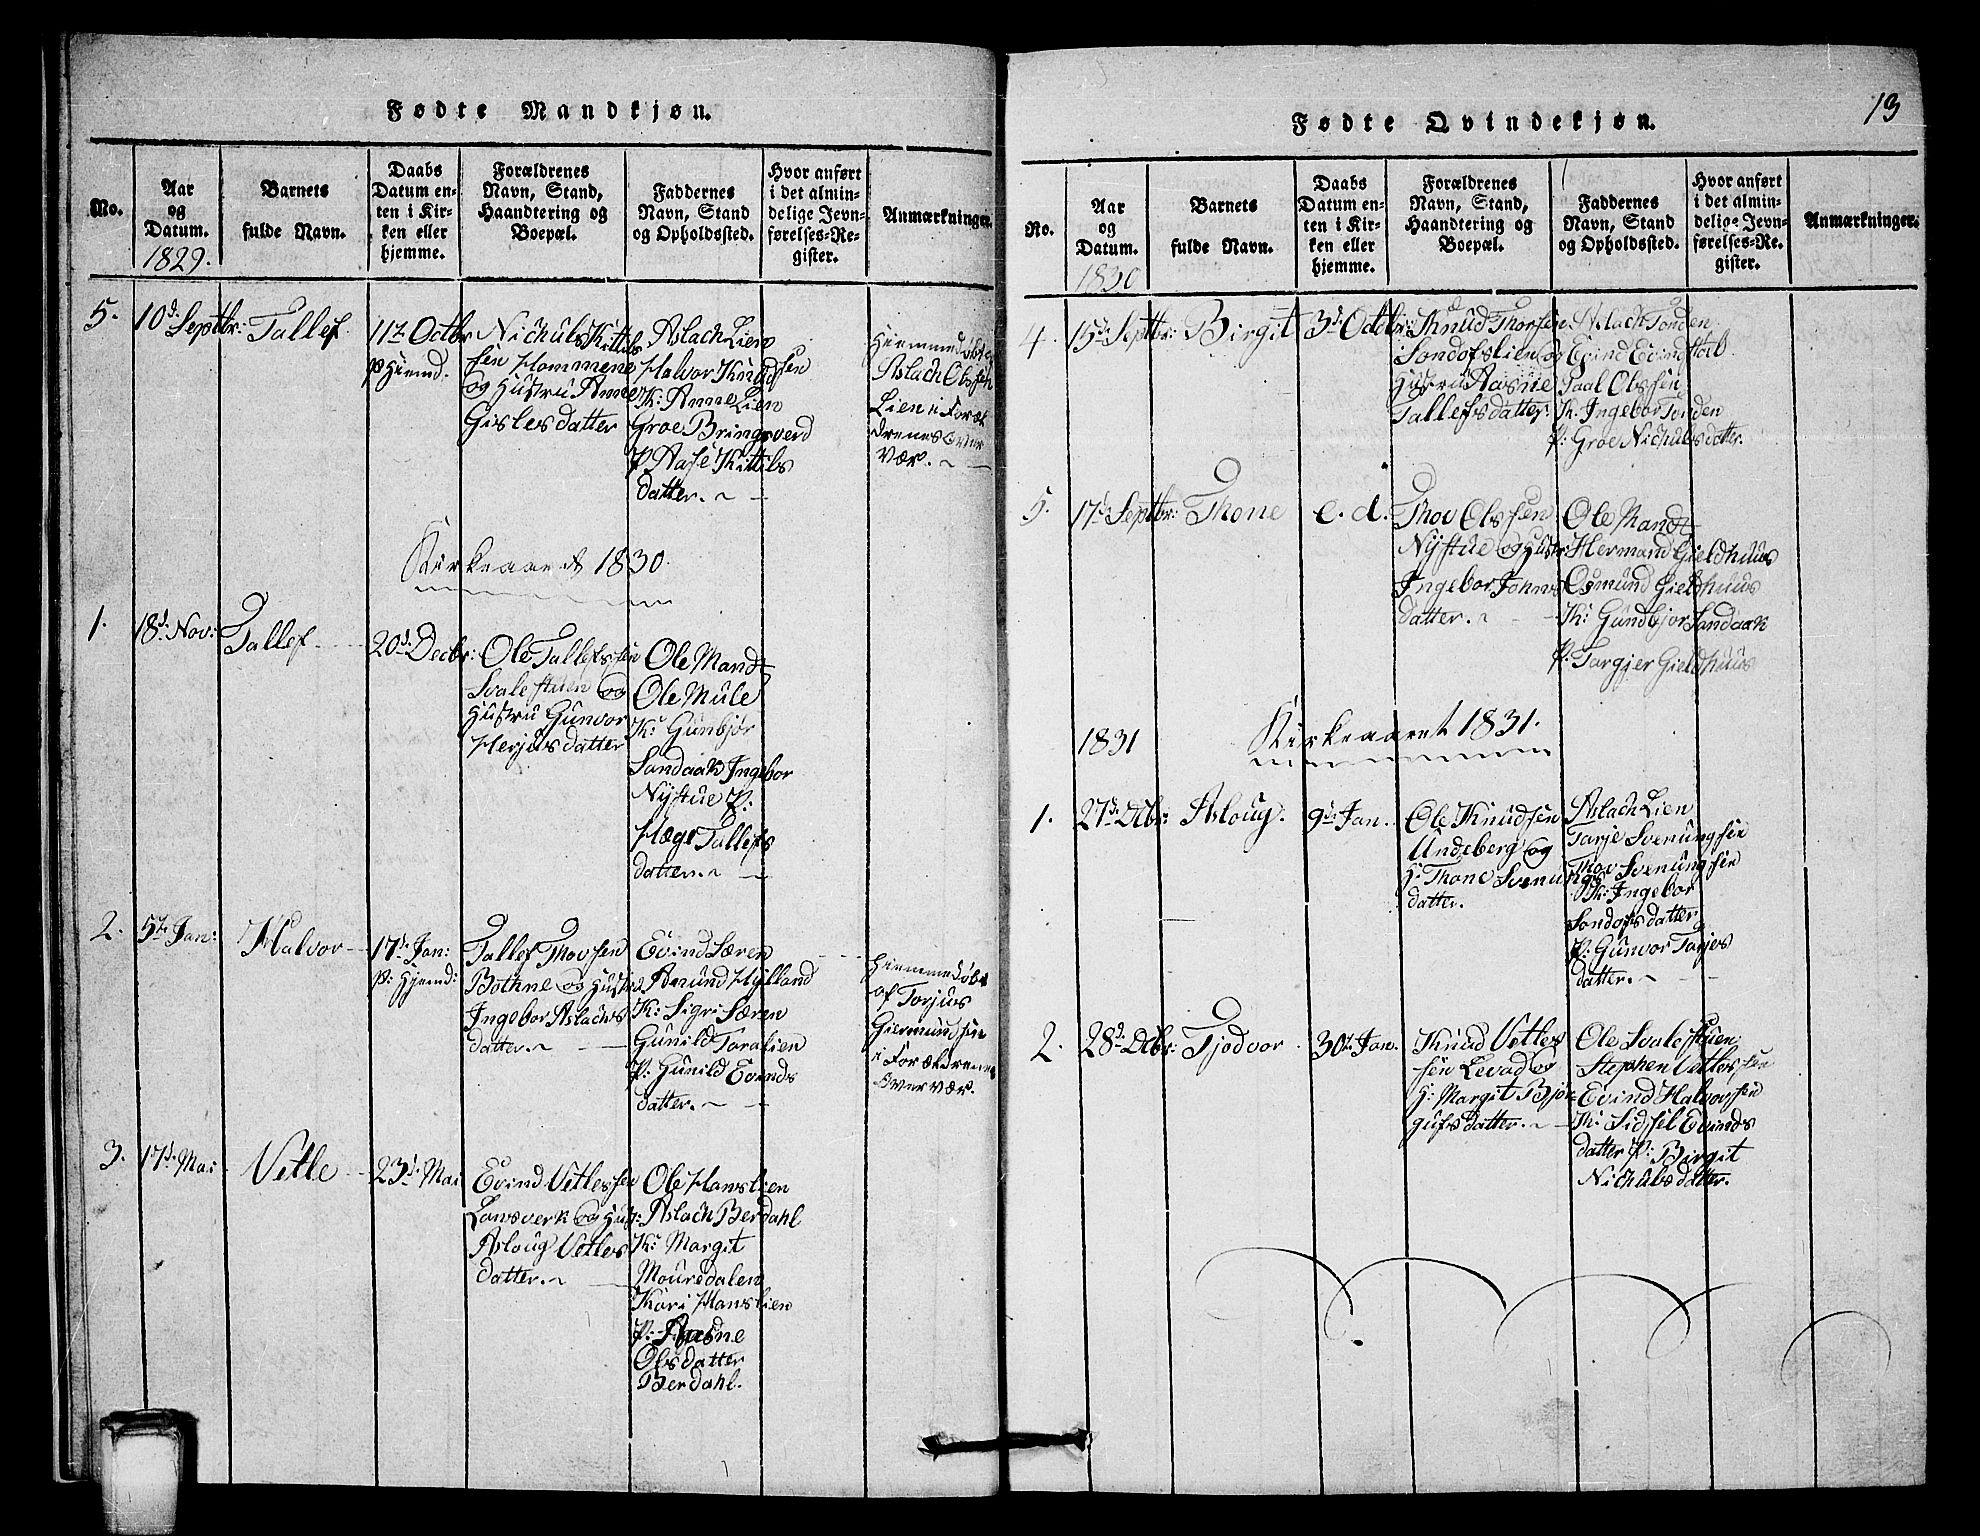 Fødte Mandkjøn.
No.
Aar
og
Datum.
1829.
Barnets
fulde Navn.
Daabs
Datum en-
ten i Kir-
ken eller
hjemme.
Forældrenes
Navn, Stand,
Haandtering og
Boepæl.
Faddernes
Navn, Stand
og Opholdssted.
Hvor anført
i det almin-
delige Jevn-
førelses-Re-
gister.
Anmærkninger.
5.
10d. Septbr:
Tallef
11te Octbr
p Hiemd.
Nichuls Kittils
sen Hommene
og Hustru Anne
Gislesdatter
Aslach Lien
Halvor Knudsen
K: Anne Lien
Groe Bringsverd
P. Aase Kittils
datter.
Hiemmedøbt af
Aslach Olssen
Lien i Foræl
drenes Over
vær.
Kirkeaaret 1830.
1.
18d. Nov:
Tallef
20d. Decbr:
Ole Tallefssen
Svalestuen og
Hustru Gunvor
Herjusdatter
Ole Mandt
Ole Mule
K: Gunbjør
Sandaak Ingebor
Nystue P:
Hæge Tallefs
datter.
2.
5te Jan:
Halvor
17d. Jan:
P: Hjemd:
Tallef Thovsen
Bothne og Hustru
Ingebor Aslachs
datter.
Evind Særen
Amund Hylland
K: Sigri Særen
Gunild Taralien
P: Gunild Evinds
datter.
Hiemmedøbt
af Torjus
Giermundsen
i Forældrenes
Overvær.
3.
17d. Mai
Vetle
23d. Mai
Evind Vetlessen
Lansverk og Hust:
Asloug Vetles
datter.
Ole Hanslien
Aslach Berdahl
K: Margit
Mouredalen
Kari Hanslien
P: Aasne
Olsdatter
Berdahl.
13
Fødte Qvindekjøn.
No.
Aar
og
Datum.
1830
Barnets
fulde Navn.
Daabs
Datum en-
ten i Kir-
ken eller
hjemme.
Forældrenes
Navn, Stand,
Haandtering og
Boepæl.
Faddernes
Navn, Stand
og Opholdssted.
Hvor anført
i det almin-
delige Jevn-
førelses-Re-
gister.
Anmærkninger.
4.
15d. Septbr:
Birgit
3d. Octbr:
Knud Thorsen
Sondofslien og
Hustru Aasne
Tallefsdatter:
Aslach Tonden
Evind Evindstad
Paal Olssen
K: Ingebor Tonden
P: Groe Nichulsdatter.
5.
17d. Septbr:
Thone
e. d.
Thov Olssen
Nystue og Hustr:
Ingebor Johns
datter.
Ole Mandt
Hermand Gieldhuus
Osmund Gieldhuus
K: Gundbjor Sandaak
P: Targjer Gieldhuus
1831
Kirkeaaret 1831.
1.
27d. Dcbr:
Asloug.
9d. Jan.
Ole Knudsen
Undeberg og
H: Thone Svenungs
datter.
Aslach Lien
Tarje Svenungsen
Thov Svenungsen
K: Ingebor
Sondofsdatter
P: Gunvor Tarjes
datter.
2.
28d. Dcbr:
Tjodvor
30te Jan.
Knud Vetles
sen Levad og
H: Margit Bjør
gufsdatter.
Ole Svalestuen
Stephen Vetlessen
Evind Halvorsen
K: Sidsel Evinds
datter P: Birgit
Nichulsdatter.